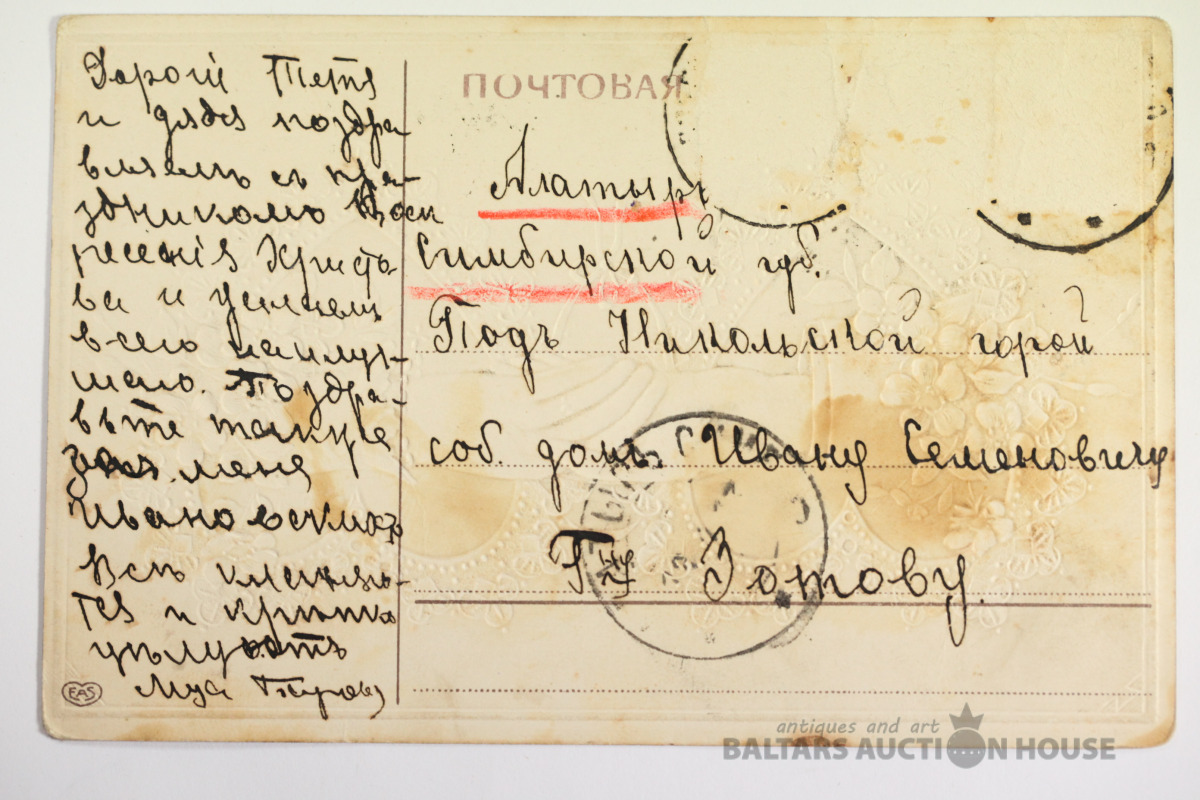 Дарогiй Тетя
и дядя поздра-
вляемъ съ пра-
здникомъ Воск
ресенiя Христо-
ва и желаемъ
всего наилуч-
шаго. Поздра-
вьте также
меня
Ивановскихъ
Всѣ кланяю-
тся и крѣпко
цѣлуютъ
EAS
ПОЧТОВАЯ
Алатырь
Симбирской губ.
Подъ Никольской горой
соб. домъ Ивану Семеновичу
Гну Зотову.
antiques and art
BALTARS AUCTION HOUSE